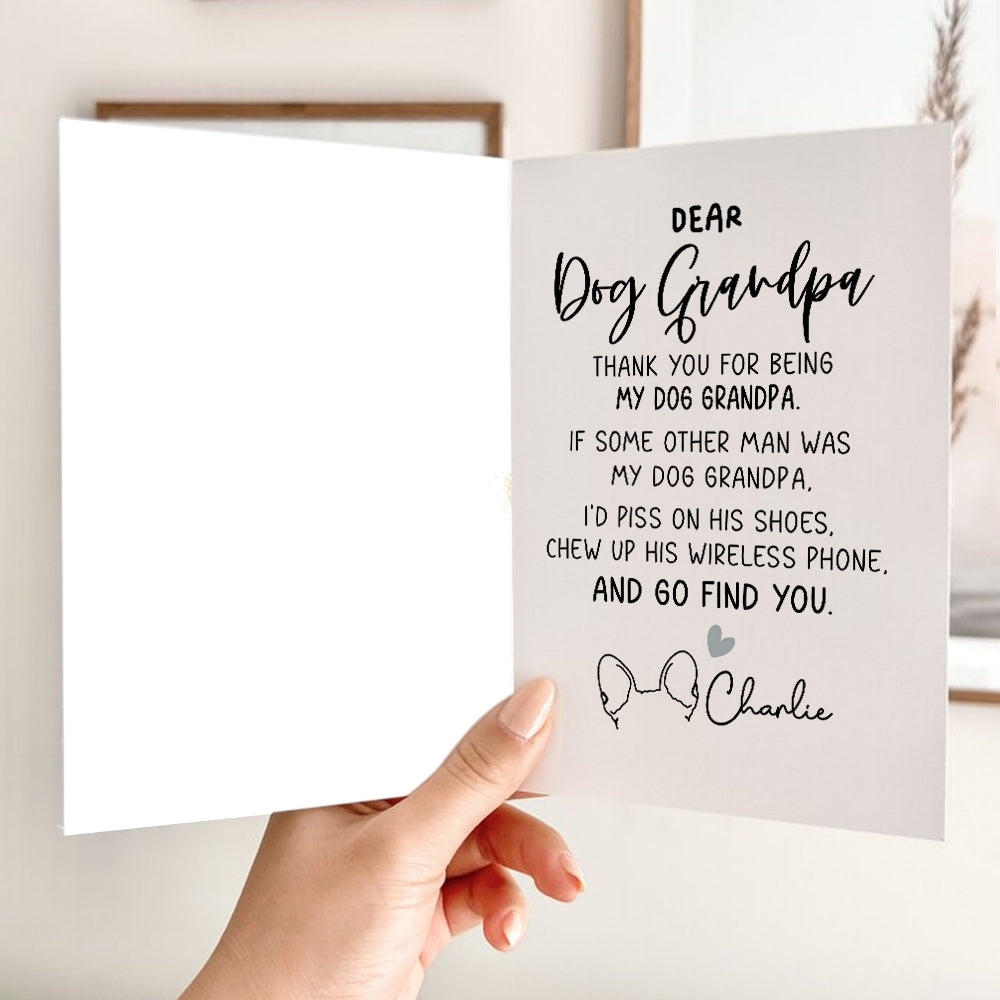 DEAR
Dog Grandpa
THANK YOU FOR BEING
MY DOG GRANDPA.
IF SOME OTHER MAN WAS
MY DOG GRANDPA,
I'D PISS ON HIS SHOES,
CHEW UP HIS WIRELESS PHONE,
AND GO FIND YOU.
Charlie